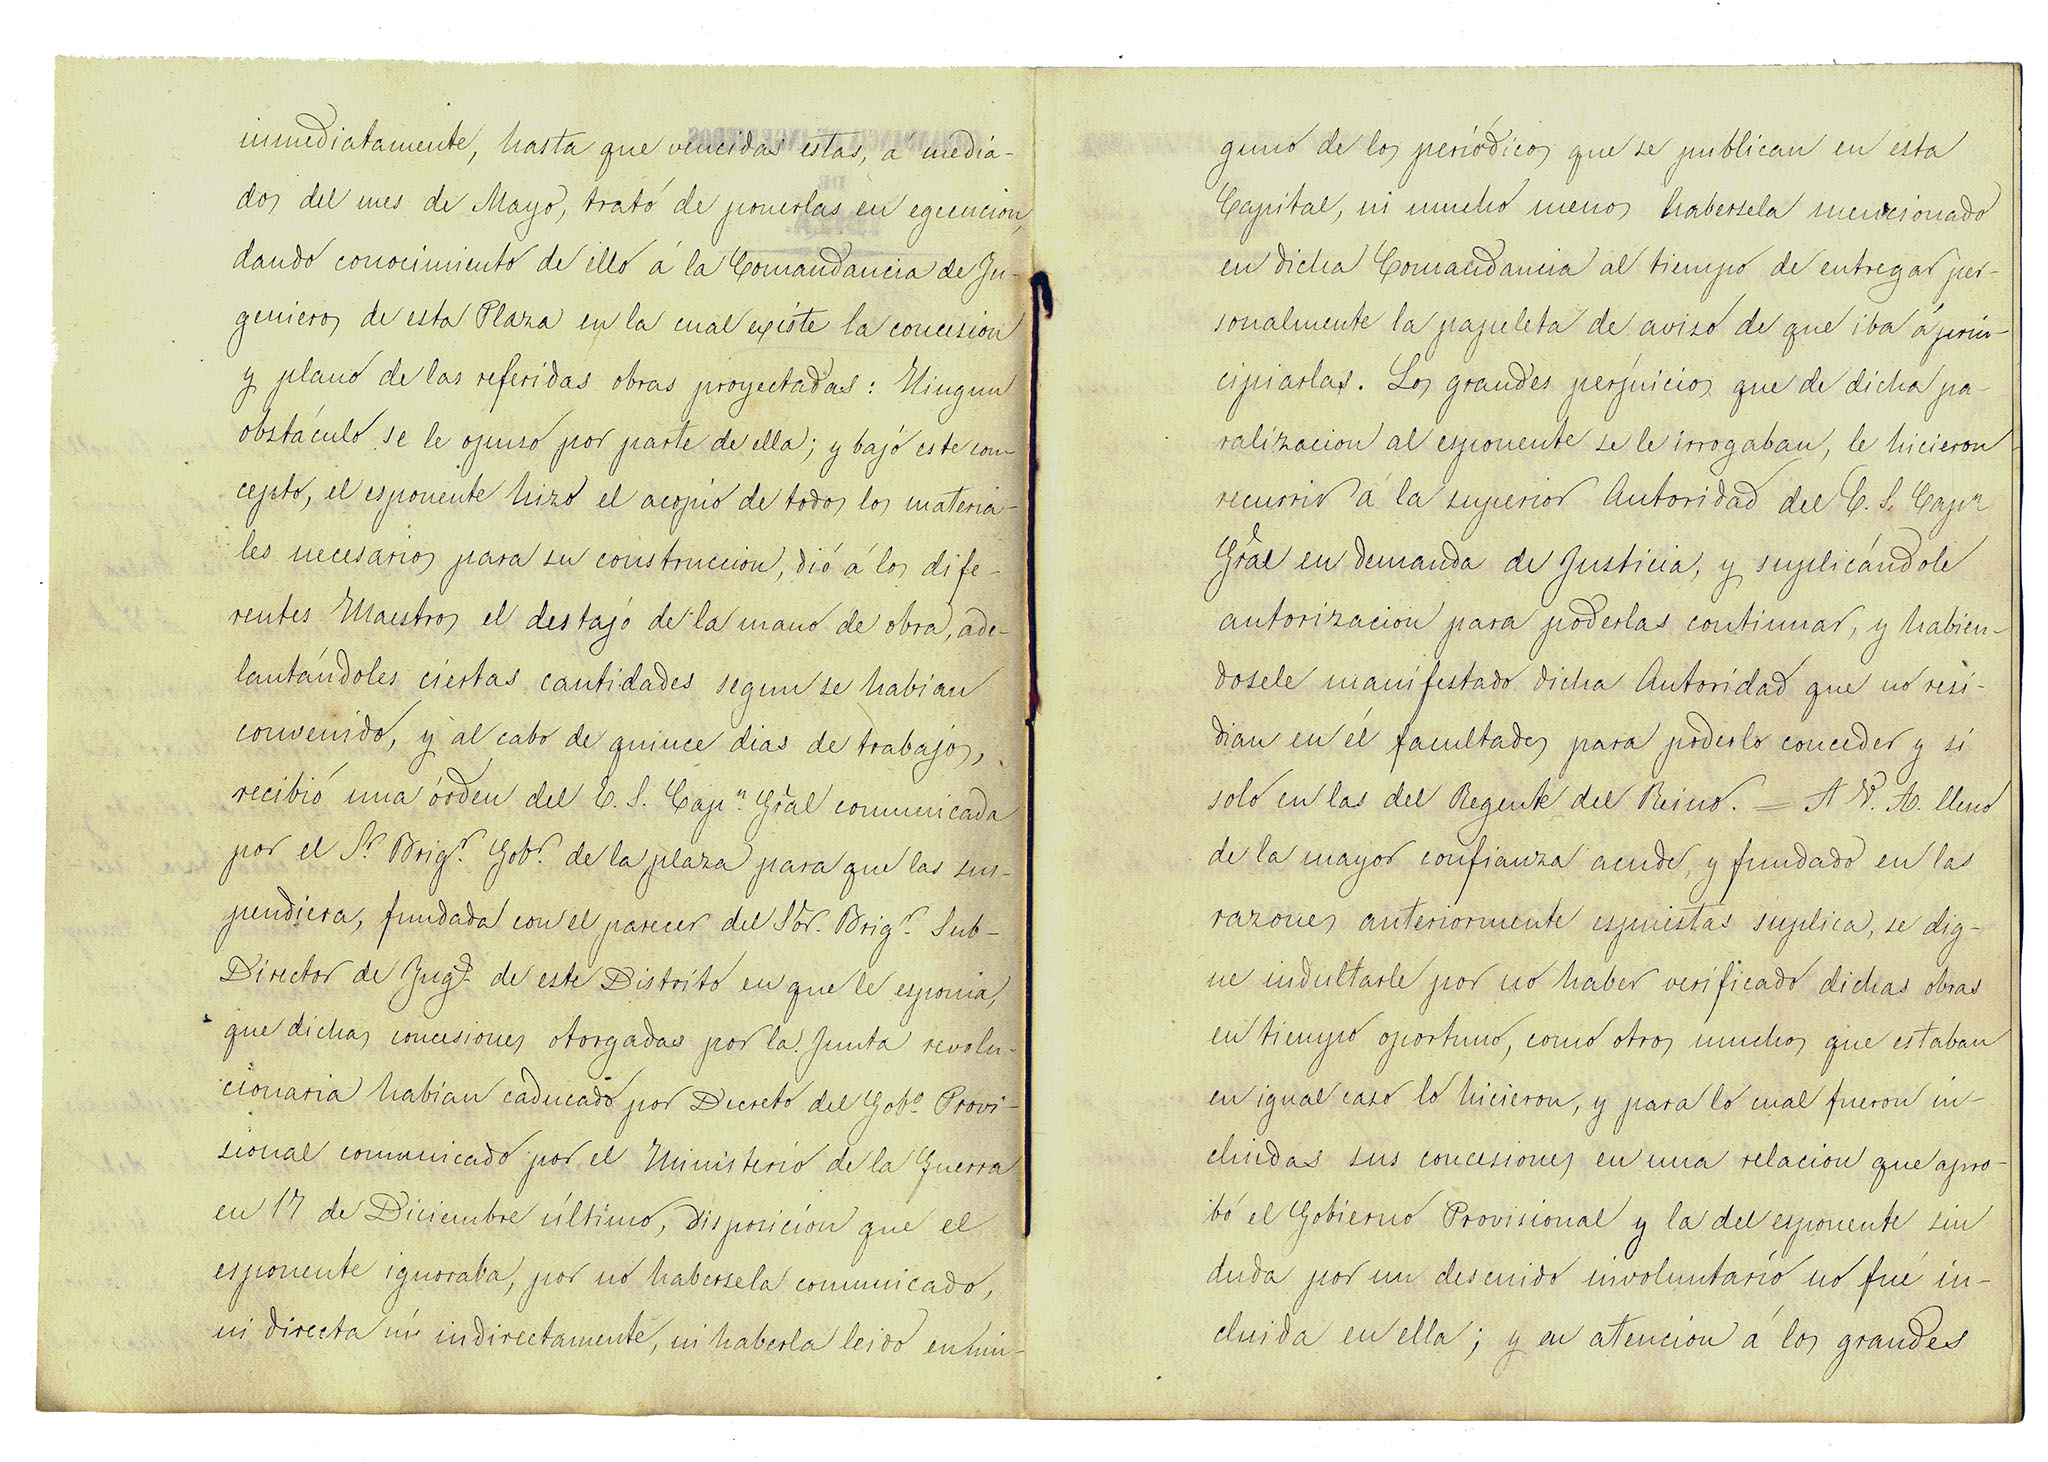 inmediatamente, hasta que vencidas estas, á media-
dos del mes de Mayo, trató de ponerlas en egecucion,
dando conocimiento de ello á la Comandancia de In-
genieros de esta Plaza en la cual existe la concesion
y plano de las referidas obras proyectadas: Ningun
obstáculo se le opuso por parte de ella; y bajo este con-
cepto, el esponente hizo el acopio de todos los materia-
les necesarios para su construccion, dió á los dife-
rentes Maestros el destajo de la mano de obra, ade-
lantándoles ciertas cantidades segun se habian
convenido, y al cabo de quince dias de trabajos,
recibió una órden del E. S. Capn. Gral comunicada
por el Sr. Brigr. Gobr. de la plaza para que las sus-
pendiera, fundada con el parecer del Sor. Brigr. Sub-
Director de Ings. de este Distrito en que le esponia,
que dichas concesiones otorgadas por la Junta revolu-
cionaria habian caducado por Decreto del Gobo. Provi-
sional comunicado por el Ministerio de la Guerra
en 17 de Diciembre último, disposicion que el
esponente ignoraba, por no habersela comunicado,
ni directa ni indirectamente, ni haberla leido en nin-
guno de los periódicos que se publican en ésta
Capital, ni mucho menos habersela mencionado
en dicha Comandancia al tiempo de entregar per-
sonalmente la papeleta de aviso de que iba á prin-
cipiarlas. Los grandes perjuicios que de dicha pa-
ralizacion al esponente se le irrogaban, le hicieron
recurrir á la superior Autoridad del E. S. Capn
Gral en demanda de Justicia, y suplicándole
autorizacion para poderlas continuar, y habien-
dosele manifestado dicha Autoridad que no resi-
dian en él facultades para poderlo conceder y si
solo en las del Regente del Reino. = A V. A. lleno
de la mayor confianza acude, y fundado en las
razones anteriormente espuestas suplica, se dig-
ne indultarle por no haber verificado dichas obras
en tiempo oportuno, como otros muchos que estaban
en igual caso lo hicieron, y para lo cual fueron in-
cluidas sus concesiones en una relacion que apro-
bó el Gobierno Provisional y la del esponente sin
duda por un descuido involuntario no fué in-
cluida en ella; y en atencion á los grandes